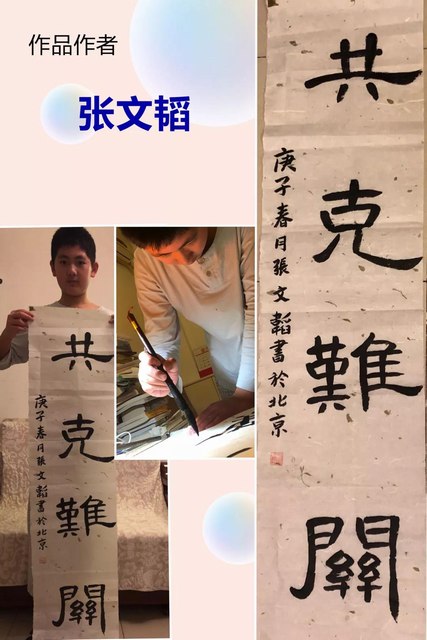 作品作者
张文韬
共克難關
庚子春月張文韜書於北京
共克難關
庚子春月張文韜書於北京